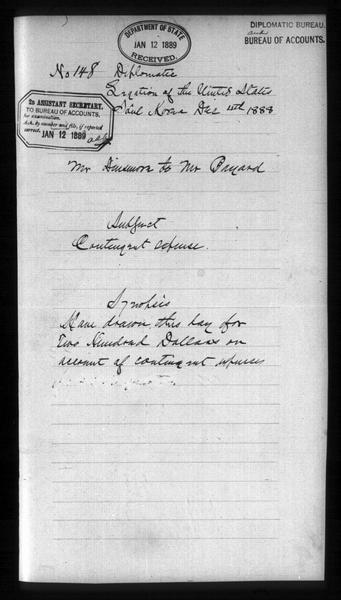 DEPARTMENT OF STATE
JAN 12 1889
RECEIVED.
DIPLOMATIC BUREAU.
and
BUREAU OF ACCOUNTS.
No 148 Diplomatic
Legation of the United States
Seoul Korea Dec 4th 1888
To ASSISTANT SECRETARY,
TO BUREAU OF ACCOUNTS,
for examination.
Ack. by number and file, if reported
correct.
JAN 12 1889
Mr Dinsmore to Mr Bayard
Subject
Contingent expense.
Synopsis
Have drawn this day for
Two Hundred Dollars on
account of contingent expenses